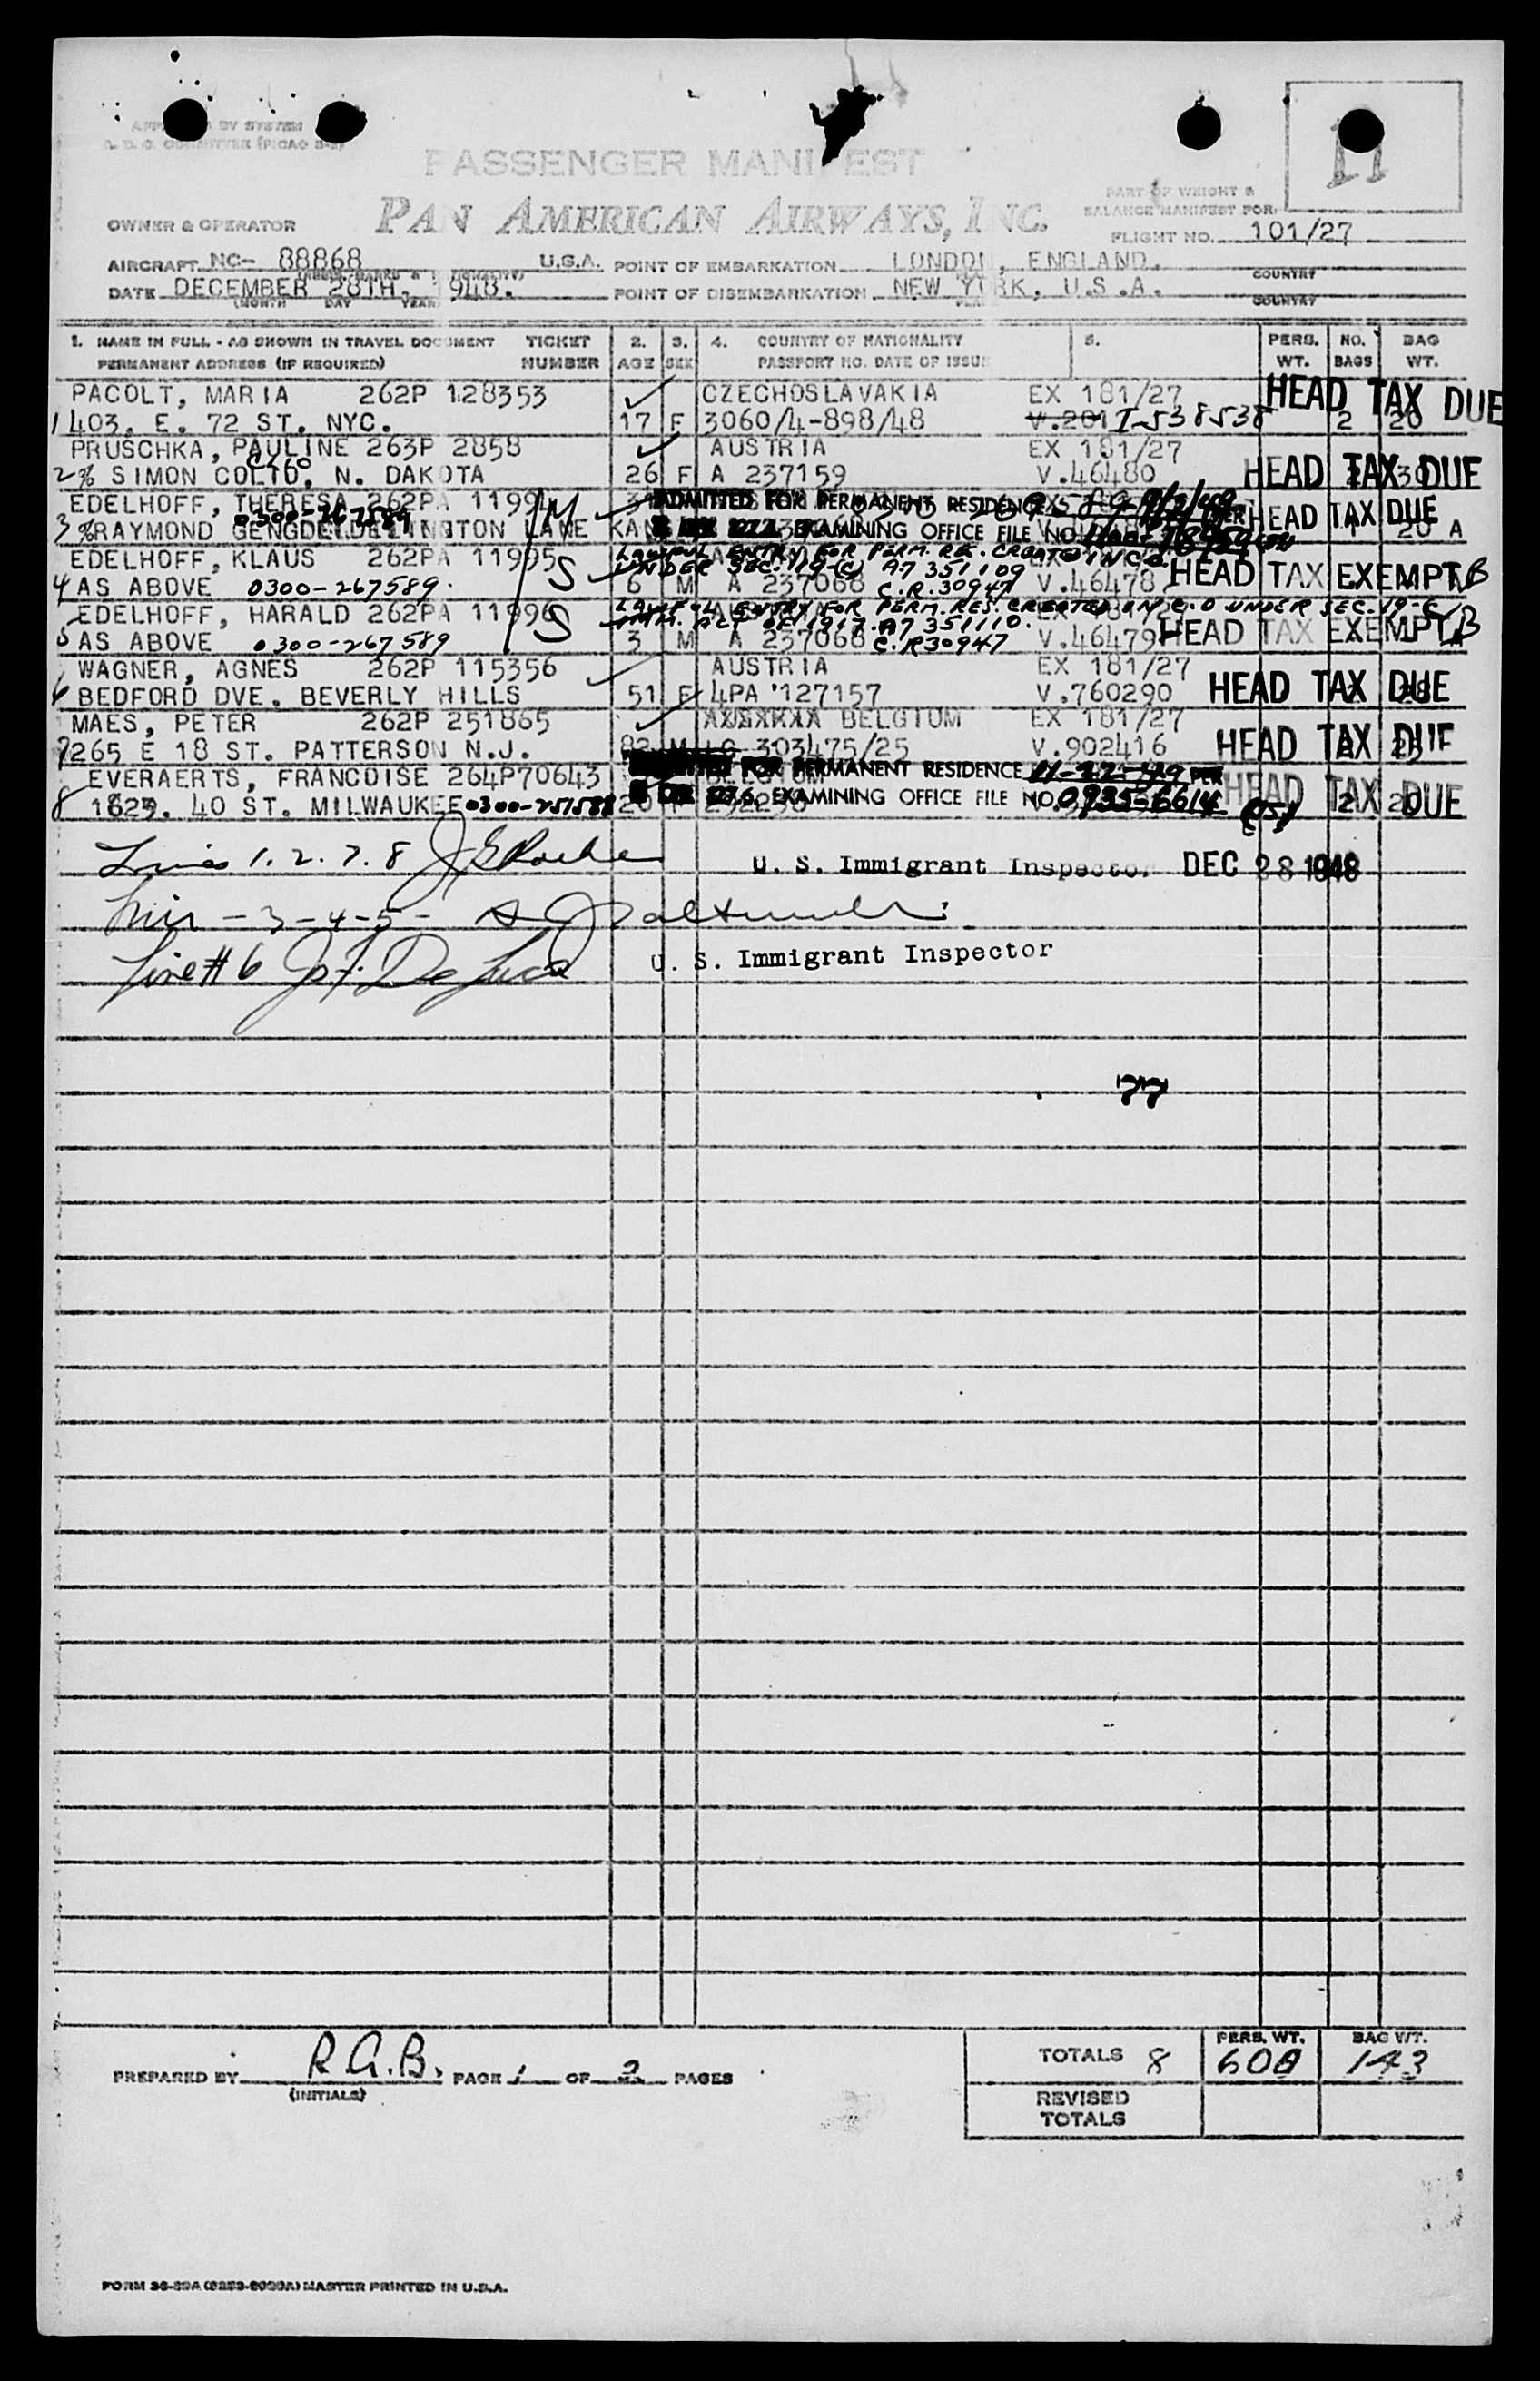 PASSENGER MANIFEST
PAN AMERICAN AIRWAYS, INC.
11
PART OF WEIGHT &
BALANCE MANIFEST FOR:
OWNER & OPERATOR
FLIGHT NO. 101/27
AIRCRAFT NC- 88868 U.S.A. POINT OF EMBARKATION LONDON, ENGLAND.
COUNTRY
DATE DECEMBER 28TH. 1948. POINT OF DISEMBARKATION NEW YORK, U.S.A.
(MONTH DAY YEAR) COUNTRY
1. NAME IN FULL - AS SHOWN IN TRAVEL DOCUMENT TICKET 2. 3. 4. COUNTRY OF NATIONALITY 5. PERS. NO. BAG
PERMANENT ADDRESS (IF REQUIRED) NUMBER AGE SEX PASSPORT NO. DATE OF ISSUE WT. BAGS WT.
PACOLT, MARIA 262P 128353 CZECHOSLAVAKIA EX 181/27 HEAD TAX DUE
1 403. E. 72 ST. NYC. 17 F 3060/4-898/48 V.201 I-538538 2 20
PRUSCHKA, PAULINE 263P 2858 AUSTRIA EX 181/27
2 % SIMON N. DAKOTA 26 F A 237159 V.46480 HEAD TAX DUE 30
EDELHOFF, THERESA 262PA 11994 M ADMITTED FOR PERMANENT RESIDENCE PER
0300-267589
3 %RAYMOND LANE KAN EXAMINING OFFICE FILE NO. HEAD TAX DUE 1 25 A
EDELHOFF, KLAUS 262PA 11995 S LAWFUL ENTRY FOR PERM. RES. CREATED IN C.O.
UNDER SEC. 119-(C) A7 351109
4 AS ABOVE 0300-267589. 6 M A 237068 C.R.30947 V.46478 HEAD TAX EXEMPT B
EDELHOFF, HARALD 262PA 11996 S LAWFUL ENTRY FOR PERM. RES. CREATED IN C.O UNDER SEC. 19-C
IMM. ACT OF 1917. A7 351110.
5 AS ABOVE 0300-267589 3 M A 237068 C.R30947 V.46479 HEAD TAX EXEMPT B
WAGNER, AGNES 262P 115356 AUSTRIA EX 181/27
6 BEDFORD DVE. BEVERLY HILLS 51 F 4PA '127157 V.760290 HEAD TAX DUE
MAES, PETER 262P 251865 BELGIUM EX 181/27
7 265 E 18 ST. PATTERSON N.J. 82 M LG 303475/25 V.902416 HEAD TAX DUE
EVERAERTS, FRANCOISE 264P70643 FOR PERMANENT RESIDENCE 11-22-49 PER
8 1829. 40 ST. MILWAUKEE 0300-251588 20 F EXAMINING OFFICE FILE NO. 0935-6614 HEAD TAX DUE 2 20
Lines 1. 2. 7. 8 U. S. Immigrant Inspector DEC 28 1948
Lines - 3-4-5-
Line # 6 Jos. F. De Luca U. S. Immigrant Inspector
77
PERS. WT. BAG WT.
TOTALS 8 608 143
PREPARED BY R.A.B. PAGE 1 OF 2 PAGES
(INITIALS)
REVISED
TOTALS
MASTER PRINTED IN U.S.A.